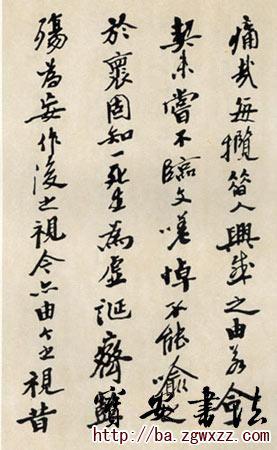 痛哉每攬昔人興感之由若合一
契未嘗不臨文嗟悼不能喻之
於懷固知一死生為虛誕齊彭
殤為妄作後之視今亦由今之視昔
寶安書法
http://ba.zgwxzz.com